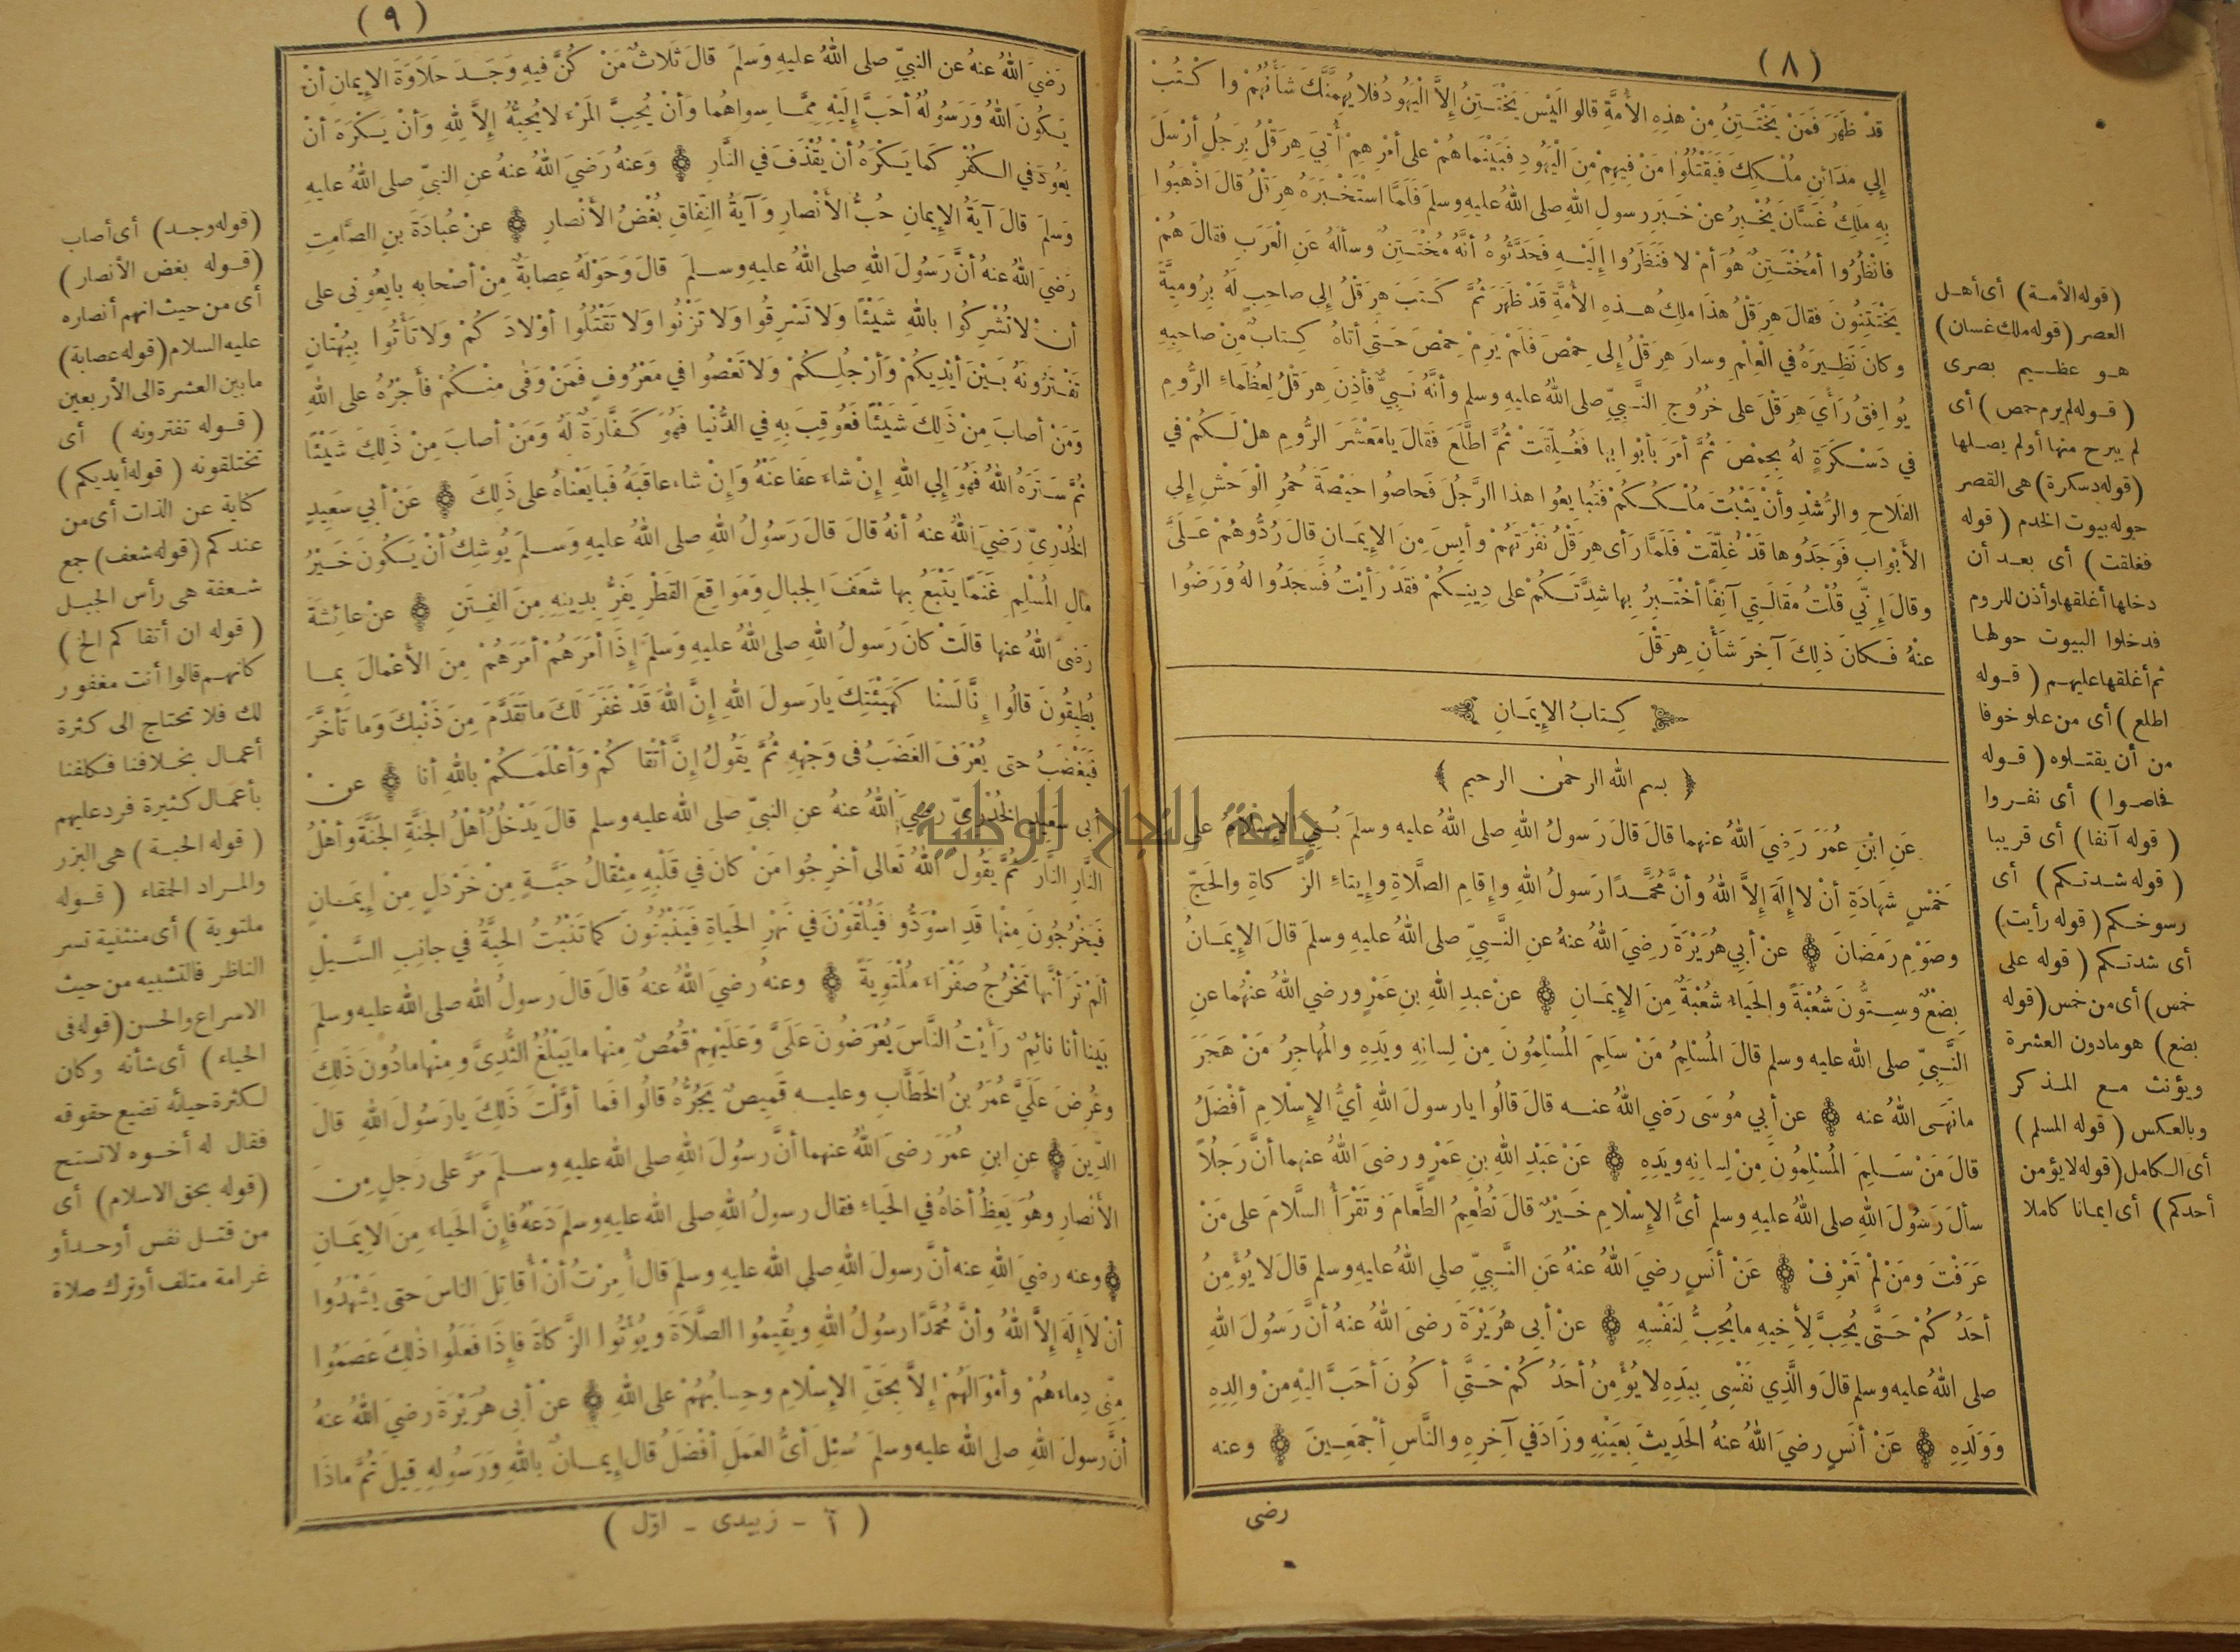 (٨)
قَدْ ظَهَرَ فَمَنْ يَخْتَتِنُ مِنْ هذِهِ الأُمَّةِ قالوا لَيْسَ يَخْتَتِنُ إِلَّا الْيَهُودُ فلا يُهِمَّنَّكَ شَأْنُهُمْ وا كْتُبْ
إِلى مَدَائِنِ مُلْكِكَ فَيَقْتُلُوا مَنْ فِيهِمْ مِنَ الْيَهُودِ فَبَيْنَماهُمْ على أَمْرِهِمْ أُتِيَ هِرَقْلُ بِرَجُلٍ أَرْسَلَ
بِهِ مَلِكُ غَسَّانَ يُخْبِرُ عنْ خَبَرِ رسولِ اللهِ صلى اللهُ عليهِ وسلمَ فَلَمَّا اسْتَخْبَرَهُ هِرَقْلُ قالَ اذْهَبُوا
فانْظُرُوا أَمُخْتَتِنٌ هُوَ أَمْ لا فَنَظَرُوا إِلَيْهِ فَحَدَّثُوهُ أَنَّهُ مُخْتَتِنٌ وسألَهُ عَنِ الْعَرَبِ فقالَ هُمْ
يَخْتَتِنُونَ فقالَ هِرَقْلُ هذَا ملِكُ هذِهِ الأُمَّةِ قَدْ ظَهَرَ ثُمَّ كَتَبَ هِرَقْلُ إِلى صاحِبٍ لَهُ بِرُومِيَّةَ
وكانَ نَظِيرَهُ في الْعِلْمِ وسارَ هِرَقْلُ إِلى حِمْصَ فَلَمْ يَرِمْ حِمْصَ حَتَّى أَتاهُ كِتابٌ مِنْ صاحِبِهِ
يُوافِقُ رَأْيَ هِرَقْلَ على خُرُوجِ النَّبِيِّ صلى اللهُ عليهِ وسلم وأَنَّهُ نَبِيٌّ فأَذِنَ هِرَقْلُ لِعُظَماءِ الرُّومِ
في دَسْكَرَةٍ لهُ بِحِمْصَ ثُمَّ أَمَرَ بأَبْوابِها فَغُلِّقَتْ ثُمَّ اطَّلَعَ فَقالَ يا مَعْشَرَ الرُّومِ هلْ لَكُمْ في
الفَلاحِ والرُّشْدِ وأَنْ يَثْبُتَ مُلْكُكُمْ فَتُبايِعُوا هذا الرَّجُلَ فَحاصُوا حَيْصَةَ حُمُرِ الْوَحْشِ إِلى
الأَبْوابِ فَوَجَدُوها قَدْ غُلِّقَتْ فَلَمَّا رَأَى هِرَقْلُ نَفْرَتَهُمْ وأَيِسَ مِنَ الإِيمانِ قالَ رُدُّوهُمْ عَلَيَّ
وقالَ إِنِّي قُلْتُ مَقالَتِي آنِفًا أَخْتَبِرُ بِها شِدَّتَكُمْ على دِينِكُمْ فَقَدْ رَأَيْتُ فَسَجَدُوا لهُ وَرَضُوا
عنْهُ فَكانَ ذلِكَ آخِرَ شَأْنِ هِرَقْلَ
كِتابُ الإِيمَانِ
﴿ بسم الله الرحمن الرحيم ﴾
عَنِ ابْنِ عُمَرَ رَضِيَ اللهُ عنهما قالَ قالَ رَسولُ اللهِ صلى اللهُ عليه وسلمَ بُنِيَ الإِسْلامُ على
خَمْسٍ شَهادَةِ أَنْ لا إِلَهَ إِلَّا اللهُ وأَنَّ مُحَمَّدًا رَسولُ اللهِ وإِقامِ الصَّلاةِ وإِيتاءِ الزَّكاةِ والْحَجِّ
وصَوْمِ رَمَضانَ ۞ عنْ أبي هُرَيْرَةَ رَضِيَ اللهُ عنهُ عنِ النَّبِيِّ صلى اللهُ عليهِ وسلمَ قالَ الإِيمَانُ
بِضْعٌ وسِتُّونَ شُعْبَةً والْحَياءُ شُعْبَةٌ مِنَ الإِيمَانِ ۞ عنْ عبدِ اللهِ بنِ عَمْرٍو رضي اللهُ عنْهُما عنِ
النَّبِيِّ صلى الله عليه وسلم قالَ المُسْلِمُ مَنْ سَلِمَ المُسْلِمُونَ مِنْ لِسانِهِ ويَدِهِ والمُهاجِرُ مَنْ هَجَرَ
ما نَهَى اللهُ عنه ۞ عن أبي مُوسَى رَضي اللهُ عنه قالَ قالُوا يا رسولَ اللهِ أيُّ الإِسْلامِ أَفْضَلُ
قالَ مَنْ سَلِمَ المُسْلِمُونَ مِنْ لِسانِهِ ويَدِهِ ۞ عَنْ عَبْدِ اللهِ بنِ عَمْرٍو رضيَ اللهُ عنهما أنَّ رَجُلاً
سأَلَ رَسُولَ اللهِ صلى اللهُ عليهِ وسلم أيُّ الإِسْلامِ خَيْرٌ قالَ تُطْعِمُ الطَّعامَ وَتَقْرَأُ السَّلامَ على مَنْ
عَرَفْتَ ومَنْ لَمْ تَعْرِفْ ۞ عَنْ أَنَسٍ رضيَ اللهُ عنْهُ عَنِ النَّبِيِّ صلى اللهُ عليهِ وسلم قالَ لا يُؤْمِنُ
أحَدُكُمْ حَتَّى يُحِبَّ لِأَخِيهِ ما يُحِبُّ لِنَفْسِهِ ۞ عنْ أبي هُرَيْرَةَ رضيَ اللهُ عنهُ أنَّ رَسُولَ اللهِ
صلى اللهُ عليه وسلم قالَ والَّذِي نَفْسِي بِيَدِهِ لا يُؤْمِنُ أحَدُكُمْ حَتَّى أَكُونَ أَحَبَّ إليْهِ مِنْ والِدِهِ
وَوَلَدِهِ ۞ عَنْ أَنَسٍ رضيَ اللهُ عنهُ الحَدِيثَ بِعَيْنِهِ وزَادَ في آخِرِهِ والنَّاسِ أَجْمَعِينَ ۞ وعنه
رضى
(قوله الأمة) أى أهل
العصر (قوله ملك غسان)
هو عظيم بصرى
(قوله لم يرم حمص) أى
لم يبرح منها أو لم يصلها
(قوله دسكرة) هى القصر
حوله بيوت الخدم (قوله
فغلقت) أى بعد أن
دخلها أغلقها وأذن للروم
فدخلوا البيوت حولها
ثم أغلقها عليهم (قوله
اطلع) أى من علو خوفا
من أن يقتلوه (قوله
فحاصوا) أى نفروا
(قوله آنفا) أى قريبا
(قوله شدتكم) أى
رسوخكم (قوله رأيت)
أى شدتكم (قوله على
خمس) أى من خمس (قوله
بضع) هو مادون العشرة
ويؤنث مع المذكر
وبالعكس (قوله المسلم)
أى الكامل (قوله لا يؤمن
أحدكم) أى ايمانا كاملا
(٩)
رَضِيَ اللهُ عنهُ عن النبيِّ صلى اللهُ عليهِ وَسلمَ قالَ ثَلاثٌ مَنْ كُنَّ فِيهِ وَجَدَ حَلَاوَةَ الإِيمانِ أَنْ
يَكُونَ اللهُ وَرَسُولُهُ أَحَبَّ إِلَيْهِ مِمَّا سِواهُما وَأَنْ يُحِبَّ المَرْءَ لا يُحِبُّهُ إِلَّا لِلهِ وَأَنْ يَكْرَهَ أَنْ
يَعُودَ في الكُفْرِ كَما يَكْرَهُ أَنْ يُقْذَفَ في النَّارِ ۞ وَعنهُ رَضيَ اللهُ عنهُ عنِ النبيِّ صلى اللهُ عليهِ
وَسلمَ قالَ آيَةُ الإِيمانِ حُبُّ الأَنْصارِ وَآيَةُ النِّفاقِ بُغْضُ الأَنْصارِ ۞ عنْ عُبادَةَ بنِ الصَّامِتِ
رَضيَ اللهُ عنهُ أنَّ رَسُولَ اللهِ صلى اللهُ عليهِ وسلمَ قالَ وَحَوْلَهُ عِصابَةٌ مِنْ أصْحابِهِ بايِعُونِي على
أنْ لا تُشْرِكُوا باللهِ شَيْئًا وَلا تَسْرِقُوا وَلا تَزْنُوا وَلا تَقْتُلُوا أَوْلادَكُمْ وَلا تَأْتُوا بِبُهْتانٍ
تَفْتَرُونَهُ بَيْنَ أَيْدِيكُمْ وَأَرْجُلِكُمْ وَلا تَعْصُوا في مَعْرُوفٍ فَمَنْ وَفَى مِنْكُمْ فَأَجْرُهُ على اللهِ
وَمَنْ أَصابَ مِنْ ذَلِكَ شَيْئًا فَعُوقِبَ بِهِ في الدُّنْيا فَهُوَ كَفَّارَةٌ لَهُ وَمَنْ أصابَ مِنْ ذَلِكَ شَيْئًا
ثُمَّ سَتَرَهُ اللهُ فَهُوَ إِلى اللهِ إِنْ شاءَ عَفا عَنْهُ وَإِنْ شاءَ عاقَبَهُ فَبايَعْناهُ على ذَلِكَ ۞ عَنْ أبي سَعِيدٍ
الخُدْرِيِّ رَضيَ اللهُ عنهُ أنهُ قالَ قالَ رَسُولُ اللهِ صلى اللهُ عليهِ وَسلمَ يُوشِكُ أَنْ يَكُونَ خَيْرُ
مالِ المُسْلِمِ غَنَمًا يَتْبَعُ بِها شَعَفَ الْجِبالِ وَمَواقِعَ القَطْرِ يَفِرُّ بِدِينِهِ مِنَ الفِتَنِ ۞ عنْ عائِشَةَ
رَضيَ اللهُ عنها قالَتْ كانَ رَسولُ اللهِ صلى اللهُ عليهِ وَسلمَ إِذَا أَمَرَهُمْ أَمَرَهُمْ مِنَ الأَعْمالِ بِما
يُطِيقُونَ قالُوا إِنَّا لَسْنا كَهَيْئَتِكَ يا رَسولَ اللهِ إِنَّ اللهَ قَدْ غَفَرَ لَكَ ما تَقَدَّمَ مِنْ ذَنْبِكَ وَما تَأَخَّرَ
فَيَغْضَبُ حتى يُعْرَفَ الغَضَبُ في وَجْهِهِ ثُمَّ يَقُولُ إِنَّ أَتْقاكُمْ وَأَعْلَمَكُمْ باللهِ أنا ۞ عنْ
أبي سَعِيدٍ الخُدْرِيِّ رضيَ اللهُ عنهُ عنِ النبيِّ صلى الله عليه وسلم قالَ يَدْخُلُ أَهْلُ الجنَّةِ الجَنَّةَ وأَهْلُ
النَّارِ النَّارَ ثُمَّ يقُولُ اللهُ تَعالى أَخْرِجُوا مَنْ كانَ في قَلْبِهِ مِثْقالُ حَبَّةٍ مِنْ خَرْدَلٍ مِنْ إِيمَانٍ
فَيَخْرُجُونَ مِنْها قَدِ اسْوَدُّوا فَيُلْقَوْنَ في نَهْرِ الحَياةِ فَيَنْبُتُونَ كما تَنْبُتُ الحِبَّةُ في جانِبِ السَّيْلِ
أَلَمْ تَرَ أَنَّها تَخْرُجُ صَفْرَاءَ مُلْتَوِيَةً ۞ وعنهُ رضيَ اللهُ عنهُ قالَ قالَ رسولُ الله صلى الله عليه وسلمَ
بَيْنا أنا نائِمٌ رَأَيْتُ النَّاسَ يُعْرَضُونَ عَلَيَّ وَعَلَيْهِمْ قُمُصٌ مِنْها ما يَبْلُغُ الثُّدِيَّ ومِنْها مادُونَ ذَلِكَ
وعُرِضَ عَلَيَّ عُمَرُ بنُ الخَطَّابِ وعليه قَمِيصٌ يَجُرُّهُ قالُوا فَما أَوَّلْتَ ذَلِكَ يا رَسُولَ اللهِ قالَ
الدِّينَ ۞ عنِ ابنِ عُمَرَ رضيَ اللهُ عنهما أنَّ رسُولَ اللهِ صلى الله عليهِ وسلمَ مَرَّ على رَجُلٍ مِنَ
الأَنْصارِ وهُوَ يَعِظُ أخاهُ في الحَياءِ فقال رسولُ اللهِ صلى الله عليهِ وسلمَ دَعْهُ فإِنَّ الحَياءَ مِنَ الإِيمَانِ
۞ وعنه رضيَ اللهِ عنه أنَّ رسولَ اللهِ صلى الله عليهِ وسلمَ قال أُمِرْتُ أنْ أُقاتِلَ الناسَ حتى يَشْهَدُوا
أنْ لَا إِلَهَ إِلَّا اللهُ وأنَّ مُحَمَّدًا رسُولُ اللهِ ويُقِيمُوا الصَّلَاةَ ويُؤْتُوا الزَّكاةَ فإِذَا فَعَلُوا ذلِكَ عَصَمُوا
مِنِّي دِماءَهُمْ وأَمْوَالَهُمْ إِلَّا بِحَقِّ الإِسْلامِ وحِسابُهُمْ على اللهِ ۞ عنْ أبي هُرَيْرَةَ رضيَ اللهُ عنهُ
أنَّ رسولَ اللهِ صلى الله عليه وسلمَ سُئِلَ أيُّ العَمَلِ أفْضَلُ قال إِيمانٌ باللهِ وَرَسُولِهِ قِيلَ ثُمَّ ماذَا
(٢ - زبيدى - اوّل)
(قوله وجد) أى أصاب
(قوله بغض الأنصار)
أى من حيث انهم أنصاره
عليه السلام (قوله عصابة)
مابين العشرة الى الأربعين
(قوله تفترونه) أى
تختلقونه (قوله أيديكم)
كناية عن الذات أى من
عندكم (قوله شعف) جمع
شعفة هى رأس الجبل
(قوله ان أتقاكم الخ)
كانهم قالوا أنت مغفور
لك فلا تحتاج الى كثرة
أعمال بخلافنا فكلفنا
بأعمال كثيرة فرد عليهم
(قوله الحبة) هى البزر
والمراد الحمقاء (قوله
ملتوية) أى منثنية تسر
الناظر فالتشبيه من حيث
الاسراع والحسن (قوله فى
الحياء) أى شأنه وكان
لكثرة حيائه تضيع حقوقه
فقال له أخوه لا تستح
(قوله بحق الاسلام) أى
من قتل نفس أو حد أو
غرامة متلف أو ترك صلاة
جامعة النجاح الوطنية